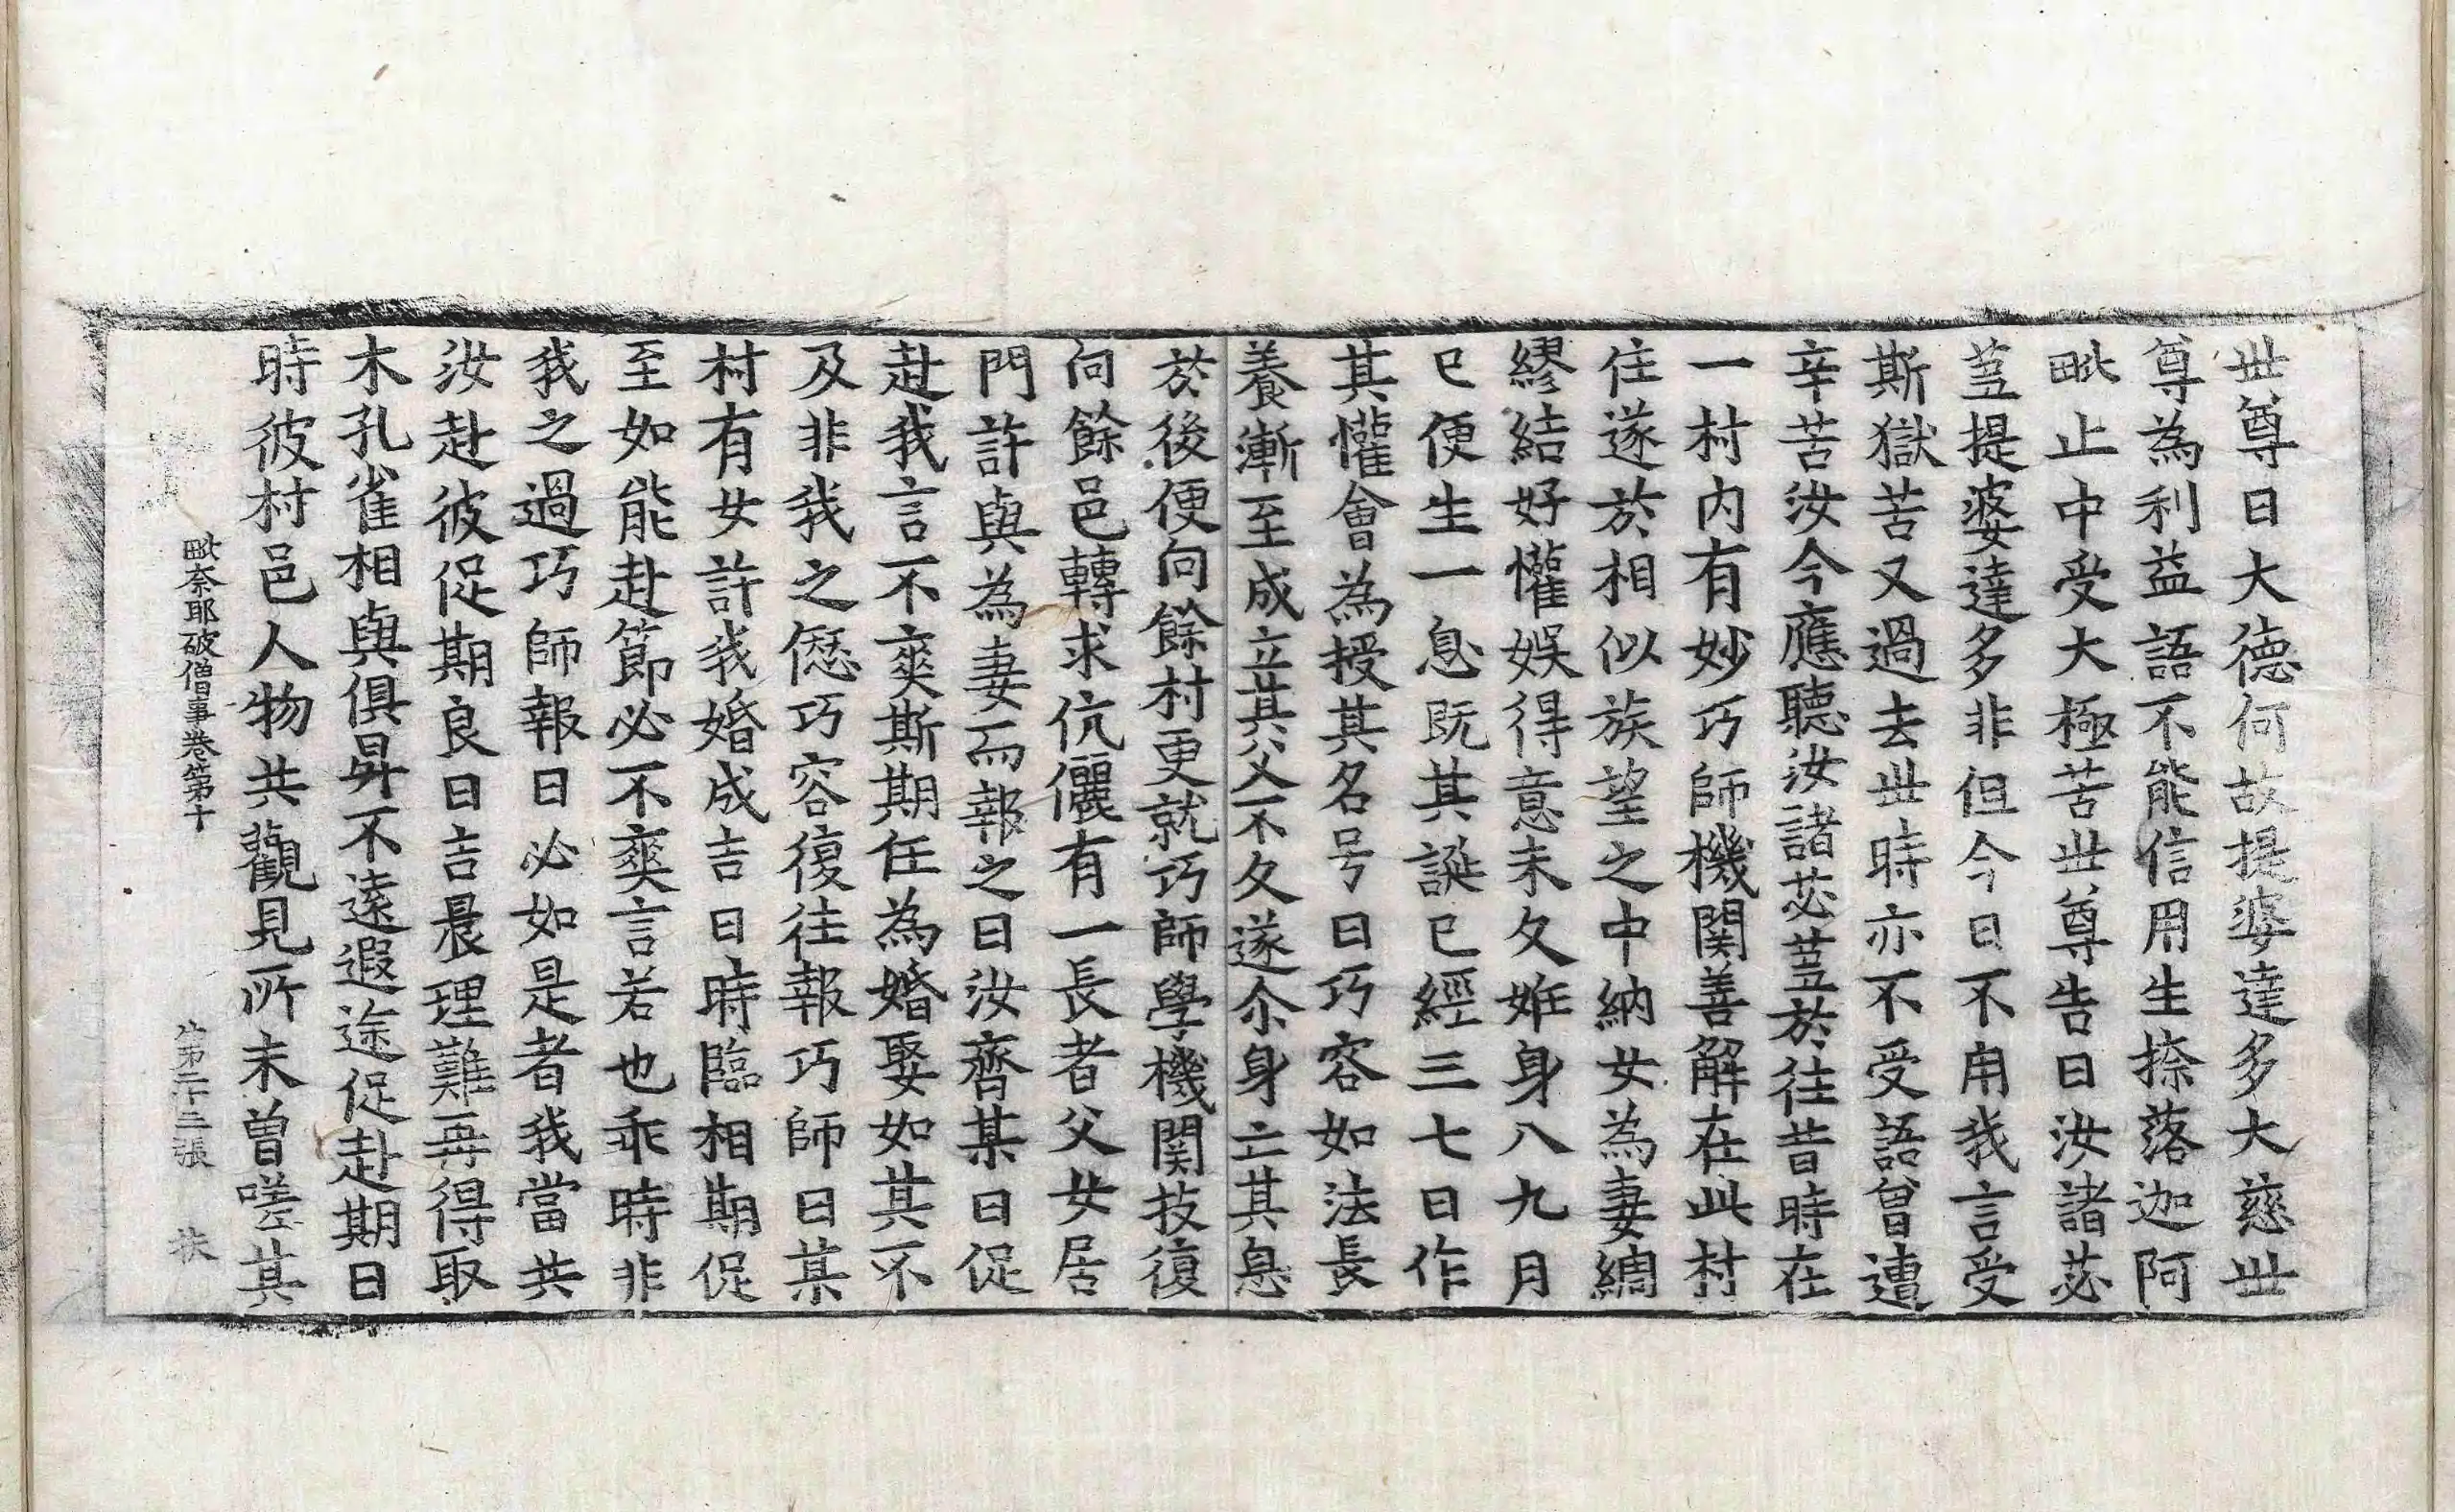 世尊曰大德何故提婆達多大慈世
尊為利益語不能信用生捺落迦阿
毗止中受大極苦世尊告曰汝諸苾
蒭提婆達多非但今日不用我言受
斯獄苦又過去世時亦不受語曾遭
辛苦汝今應聽汝諸苾蒭於往昔時在
一村內有妙巧師機関善解在此村
住遂於相似族望之中納女為妻綢
繆結好懽娛得意未久妊身八九月
已便生一息既其誕已經三七日作
其懽會為授其名号曰巧容如法長
養漸至成立其父不久遂尒身亡其息
於後便向餘村更就巧師學機関技復
向餘邑轉求伉儷有一長者父女居
門許與為妻而報之曰汝齊某日促
赴我言不爽斯期任為婚娶如其不
及非我之𠎝巧容復往報巧師曰某
村有女許我婚成吉日時臨相期促
至如能赴節必不爽言若也乖時非
我之過巧師報曰必如是者我當共
汝赴彼促期良日吉晨理難再得取
木孔雀相與俱昇不遠遐途促赴期日
時彼村邑人物共觀見所未曾嗟其
毗奈耶破僧事卷第十 第二十三張 扶